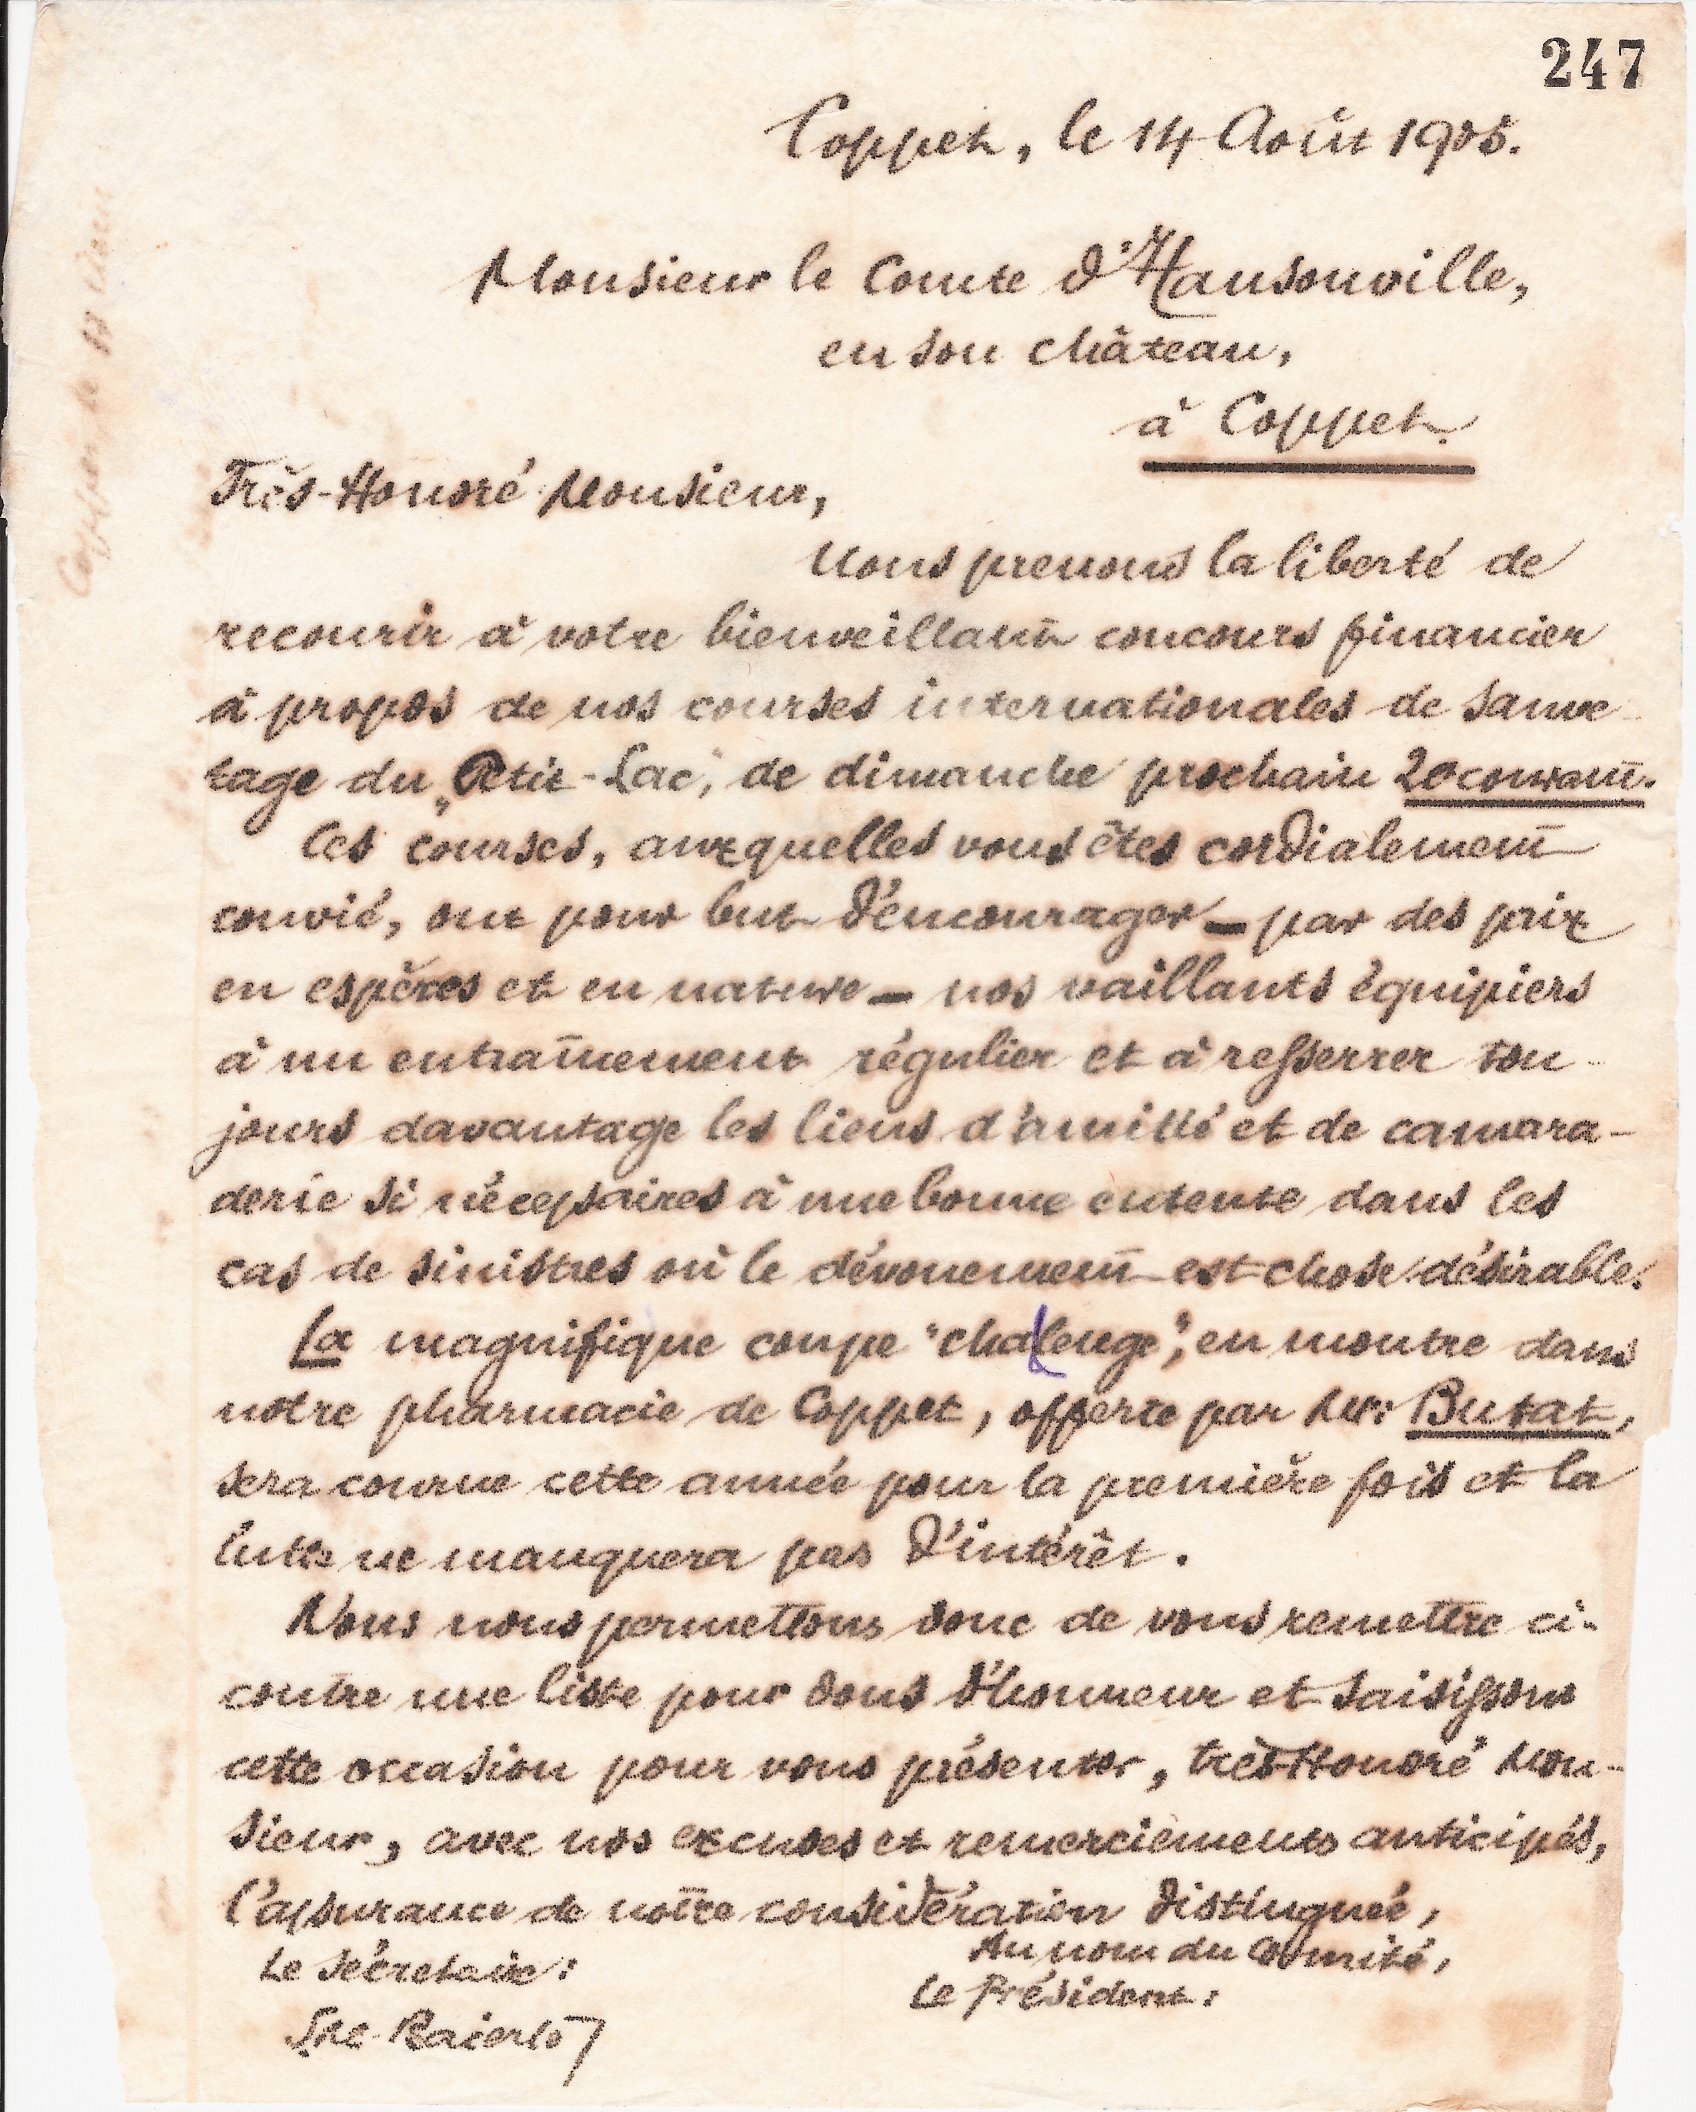 247
Coppet, le 14 Août 1905.
Monsieur le Comte d'Haussonville,
en son château,
à Coppet.
Très-Honoré Monsieur,
Nous prenons la liberté de
recourir à votre bienveillant concours financier
à propos de nos courses internationales de sauve-
tage du „Petit-Lac", de dimanche prochain 20 courant.
Ces courses, auxquelles vous êtes cordialement
convié, ont pour but d'encourager — par des prix
en espèces et en nature — nos vaillants équipiers
à un entraînement régulier et à resserrer tou-
jours davantage les liens d'amitié et de camara-
derie si nécessaires à une bonne entente dans les
cas de sinistres où le dévouement est chose désirable.
La magnifique coupe "chalenge", en montre dans
notre pharmacie de Coppet, offerte par Mr: Butat,
sera courue cette année pour la première fois et la
lutte ne manquera pas d'intérêt.
Nous nous permettons donc de vous remettre ci-
contre une liste pour dons d'honneur et saisissons
cette occasion pour vous présenter, très-Honoré Mon-
sieur, avec nos excuses et remerciements anticipés,
l'assurance de notre considération distinguée,
Au nom du Comité,
Le Sécretaire:
Le Président: